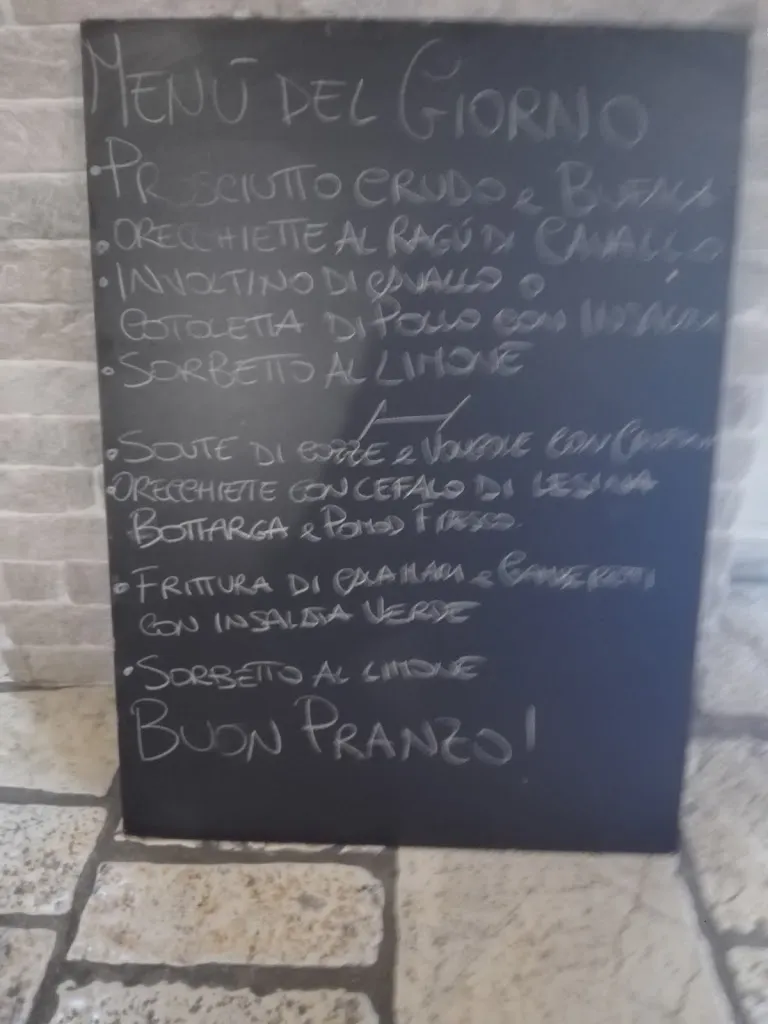 MENÙ DEL GIORNO
• PROSCIUTTO CRUDO e BUFALA
• ORECCHIETTE AL RAGÙ DI CAVALLO
• INVOLTINO DI CAVALLO o
COTOLETTA DI POLLO CON INSALATA
• SORBETTO AL LIMONE
• SOUTE DI COZZE e VONGOLE CON
• ORECCHIETE CON CEFALO DI LESINA
BOTTARGA e POMOD FRESCO
• FRITTURA DI CALAMARI e GAMBERETTI
CON INSALATA VERDE
• SORBETTO AL LIMONE
BUON PRANZO!